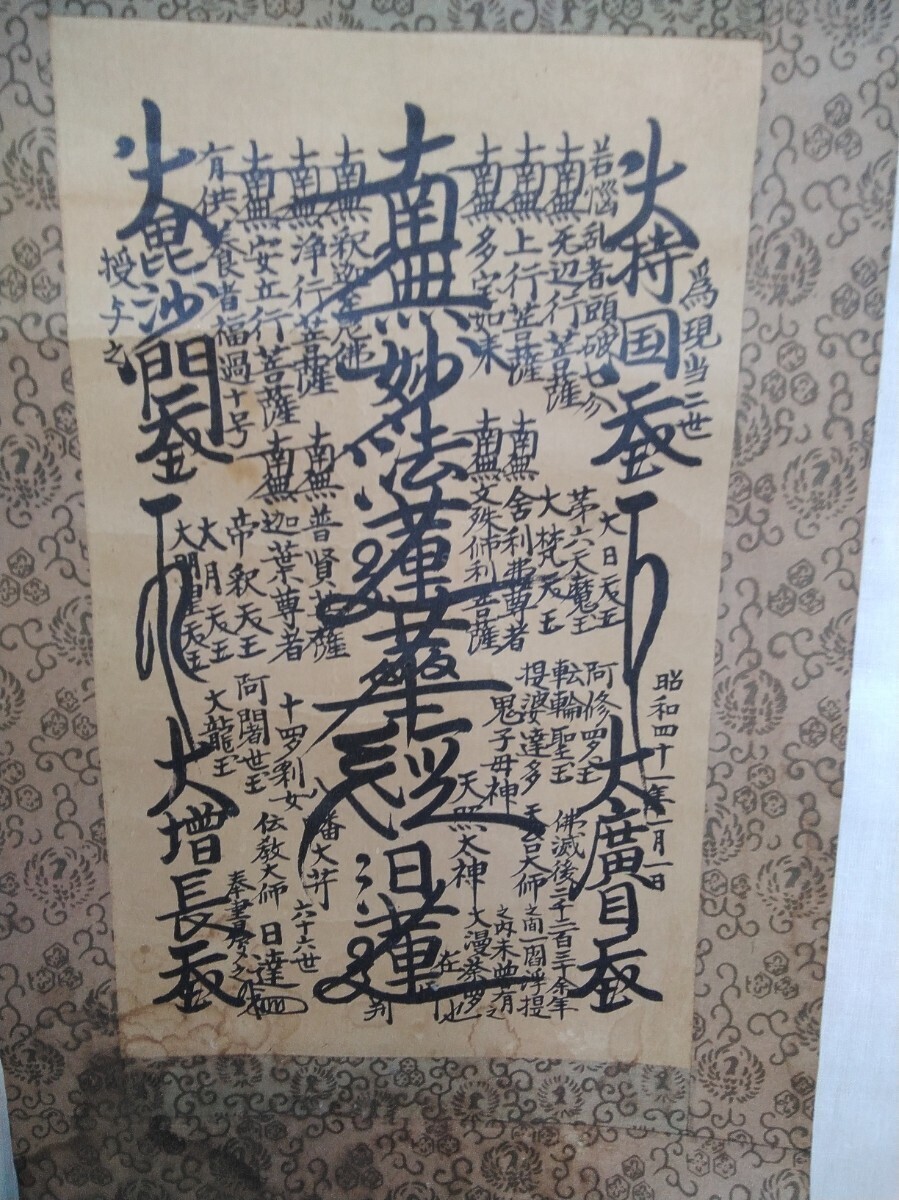 為現当二世
大持国天王
昭和四十一年一月一日
大廣目天王
若悩乱者頭破七分
南無无辺行菩薩
南無上行菩薩
南無多宝如来
大日天王
第六天魔王
大梵天王
南無舎利弗尊者
南無文殊師利菩薩
阿修羅王
転輪聖王
提婆達多
鬼子母神
天照大神
天台大師
佛滅後二千二百三十余年
之間一閻浮提
之内未曽有之
大漫荼羅也
南無妙法蓮華経
日蓮
在
判
南無釈迦牟尼佛
南無浄行菩薩
南無安立行菩薩
有供養者福過十号
南無普賢菩薩
南無迦葉尊者
帝釈天王
大月天王
大明星天王
十羅刹女
阿闍世王
大龍王
八幡大菩薩
伝教大師
六十六世
日達
奉書写之
大毘沙門天王
授与之
大増長天王